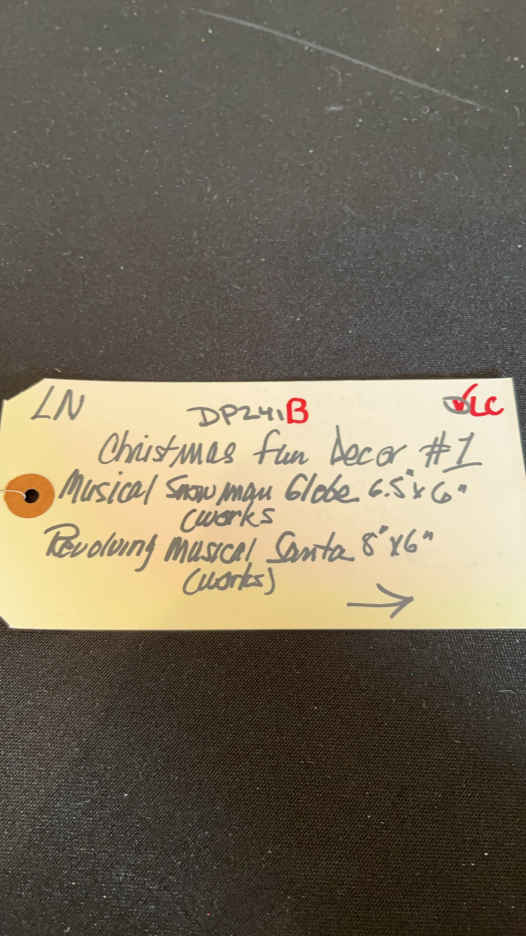 LN DP241B LC
Christmas Fun Decor #1
Musical Snowman Globe 6.5"x6"
(works
Revolving Musical Santa 8"x6"
(works)